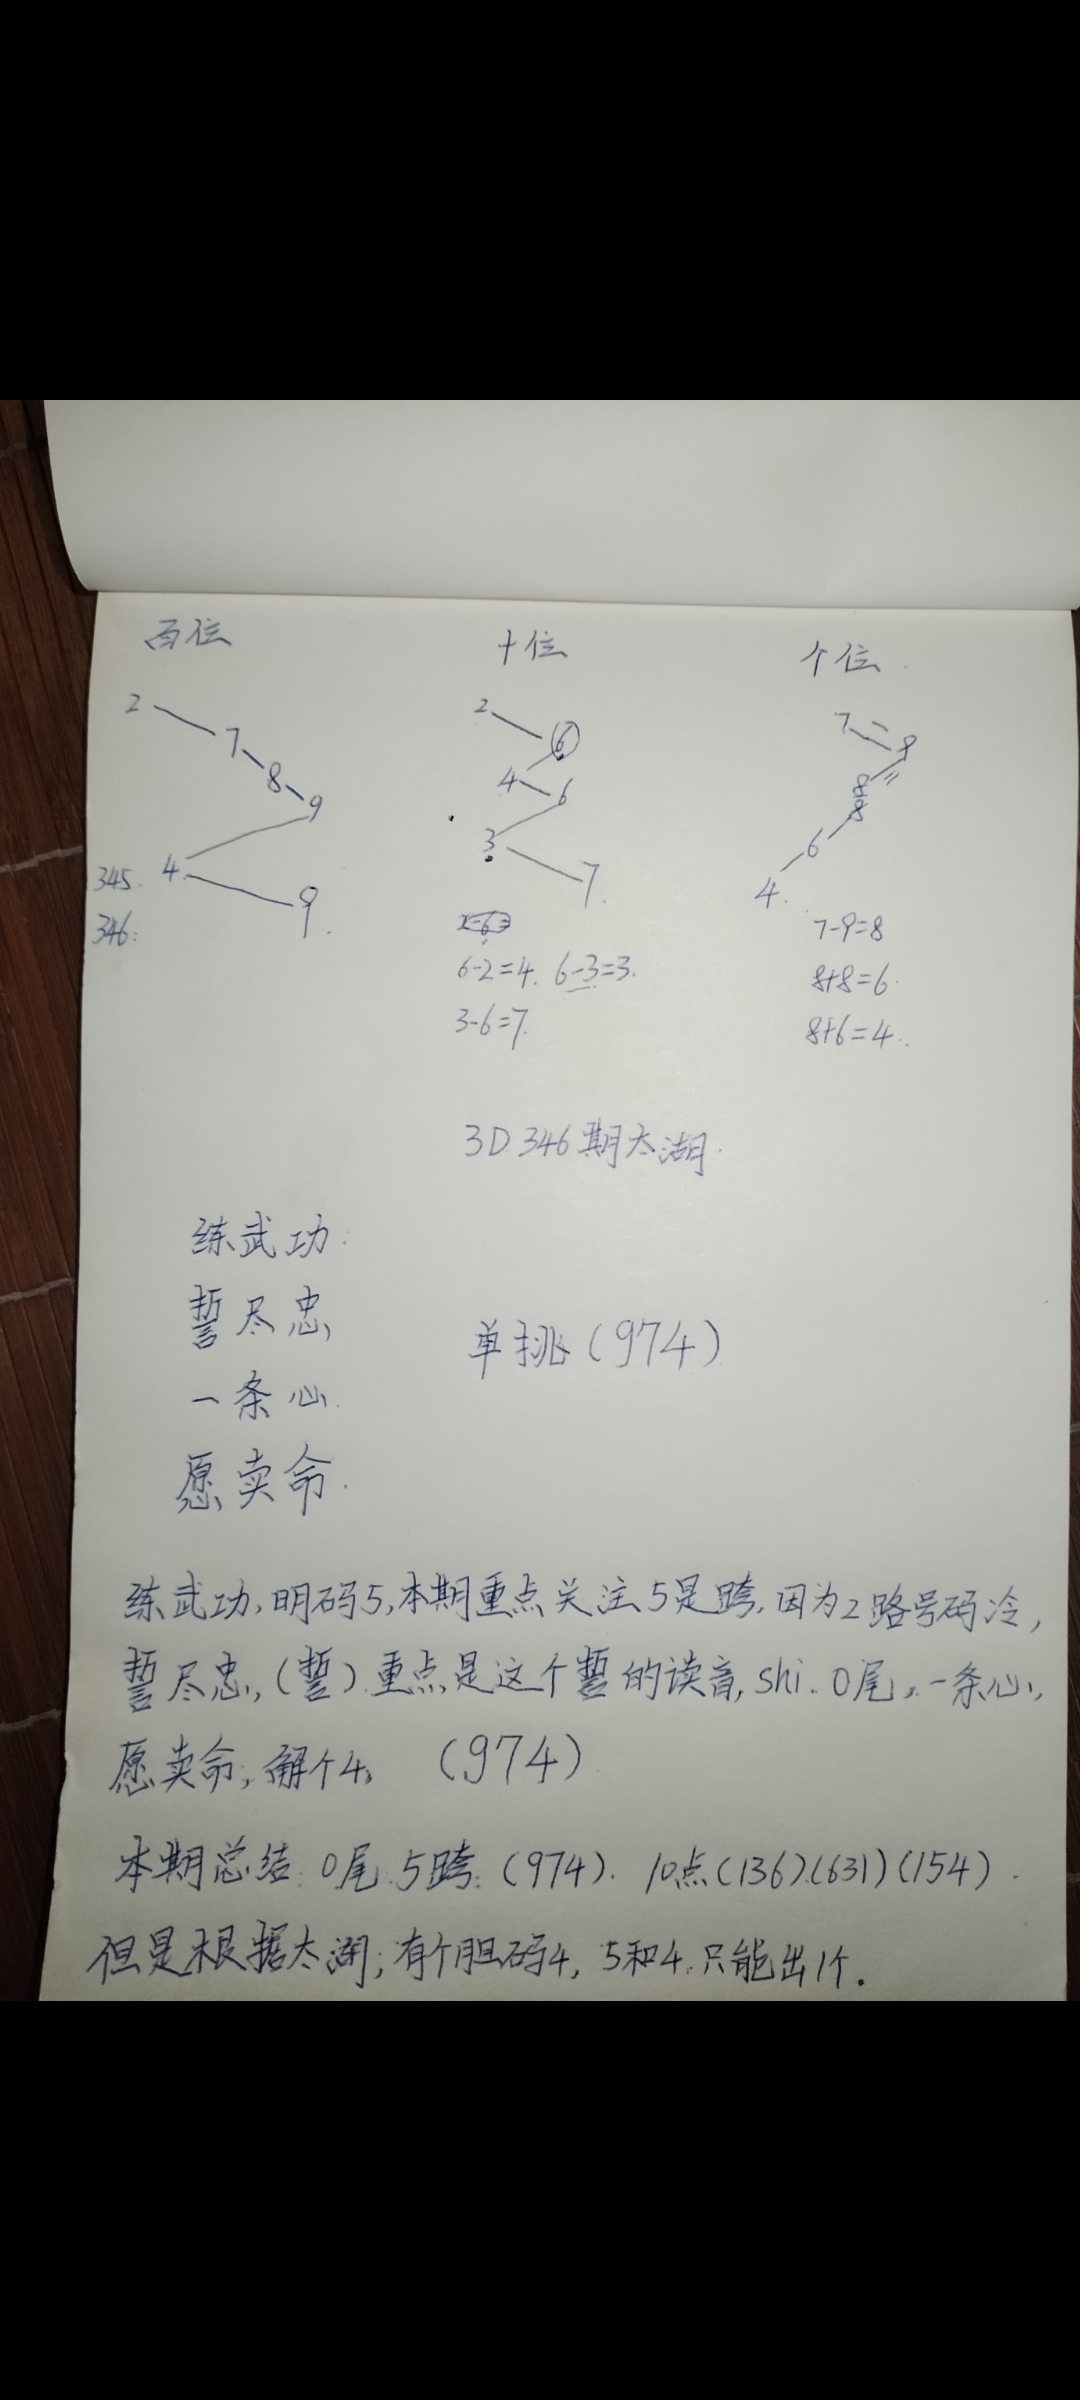 百位 十位 个位
2 2 7 9
7 6
8 4 6 8+8
9 3 6
345. 4 7 4
346: 9
6-2=4. 6-3=3. 7-9=8
3-6=7. 8+8=6
8+6=4
3D 346期太湖
练武功
誓尽忠,
一条心
愿卖命.
单挑(974)
练武功,明码5,本期重点关注5是跨,因为2路号码冷,
誓尽忠,(誓)重点是这个誓的读音,shi.0尾,一条心,
愿卖命,解个4, (974)
本期总结:0尾.5跨:(974). 10点(136)(631)(154).
但是根据太湖;有个胆码4, 5和4.只能出1个.